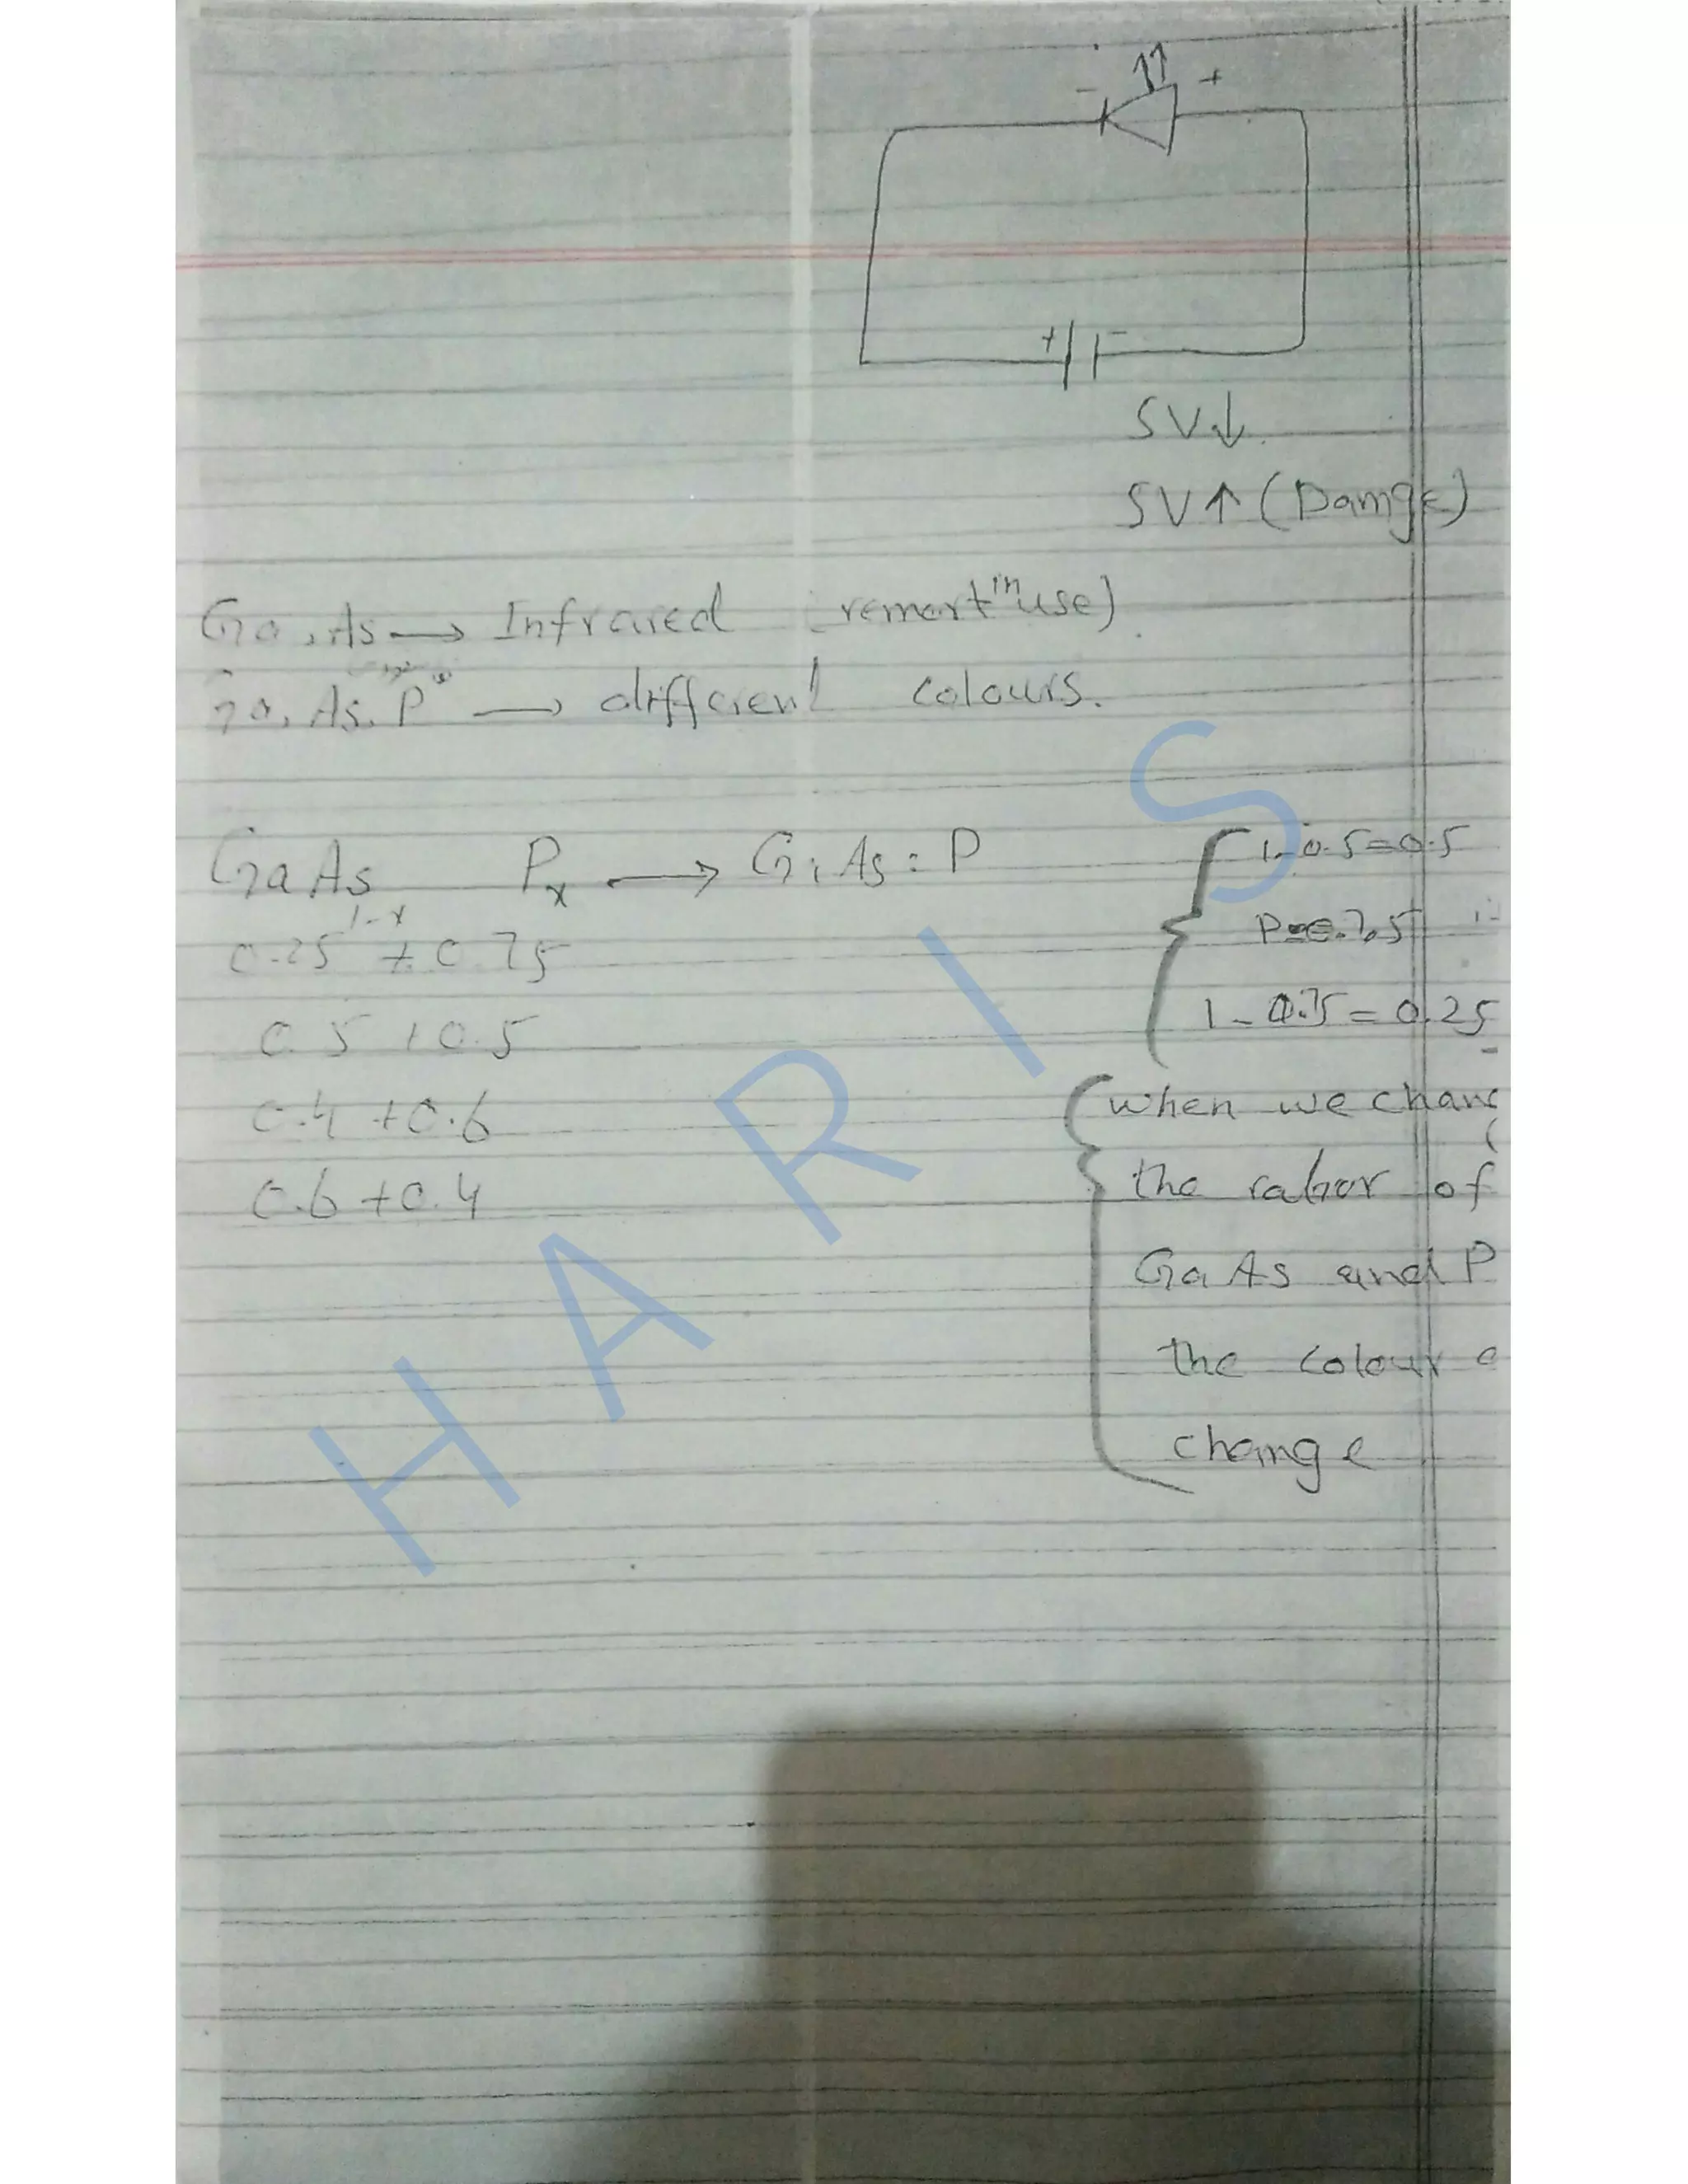 - +
+ -
5V↓
5V↑ (Damge)
Ga, As → Infrared (remort in use)
Ga, As, P → different colours.
GaAs1-x Px → GaAs : P
0.25 + 0.75
0.5 + 0.5
0.4 + 0.6
0.6 + 0.4
1-0.5=0.5
1-0.75=0.25
when we chang
the of
GaAs and P
the colour
change
HARIS